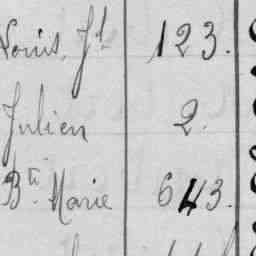 Louis, Jh 123.
Julien 2.
Bti Marie 643.